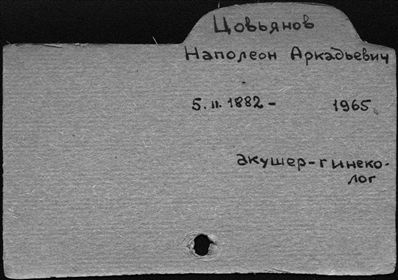 Цовьянов
Наполеон Аркадьевич
5.II.1882 - 1965
акушер-гинеко-
лог